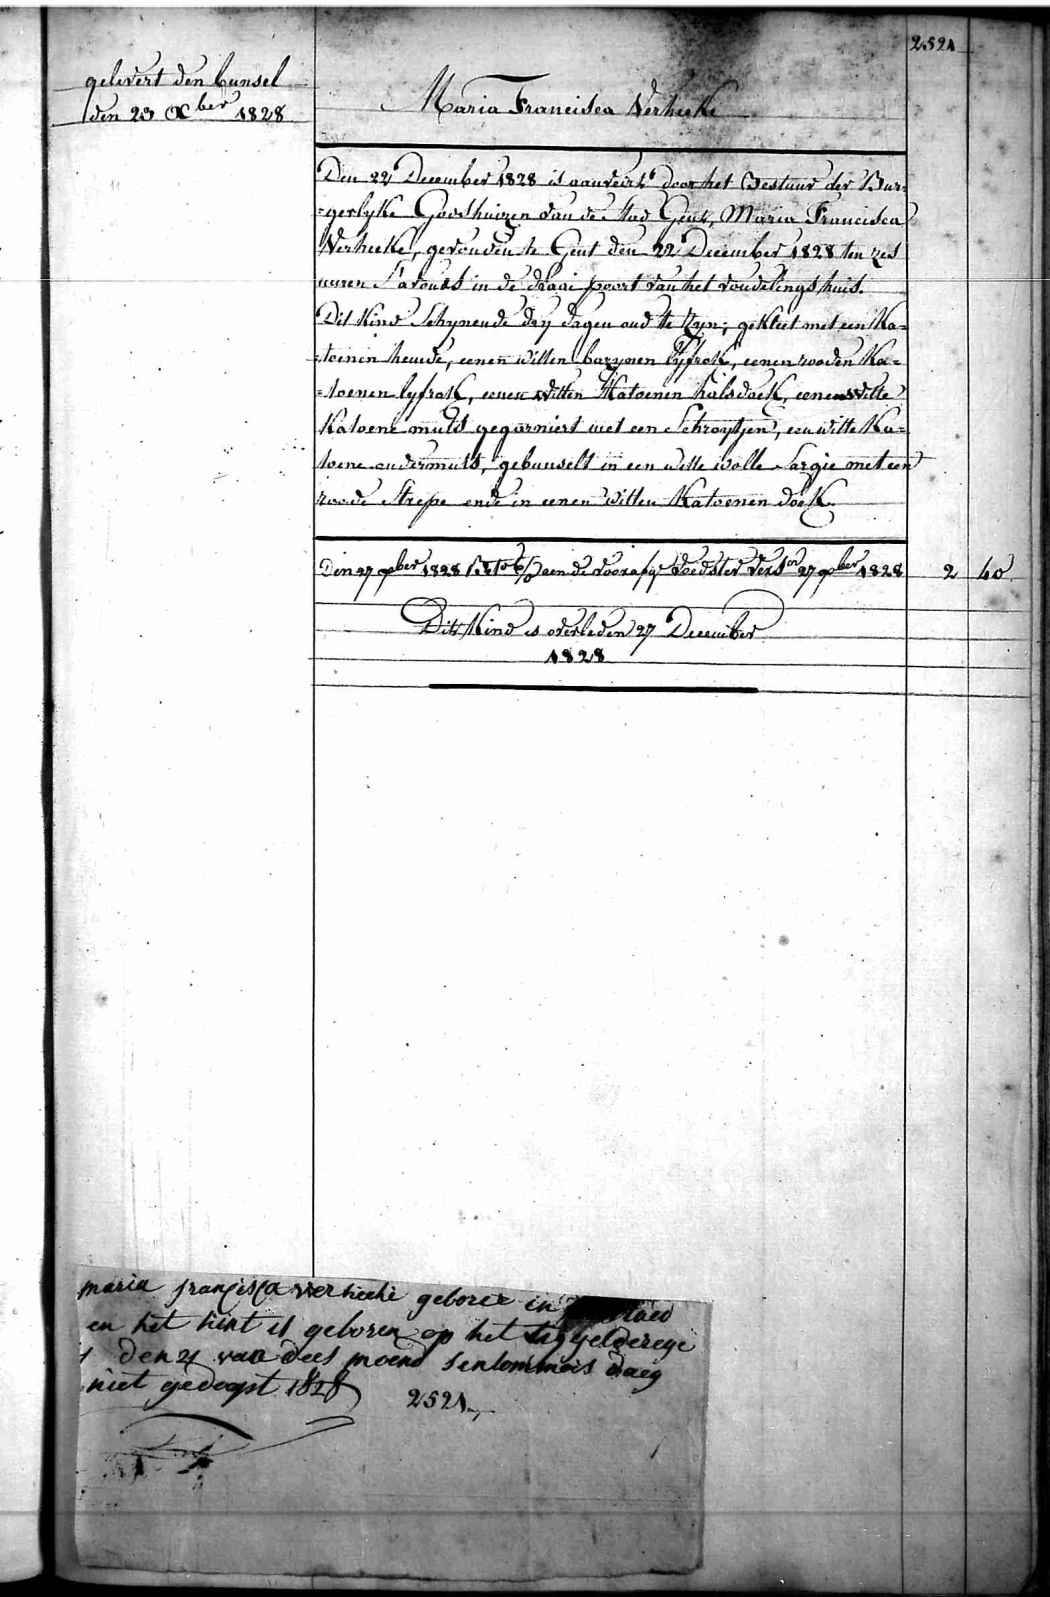 2521
gelevert den bunsel
den 23 Xber 1828
Maria Francisca Verheeke
Den 22 December 1828 is aanveirt door het Bestuur der Bur-
-gerlyke Godshuizen van de Stad Gent, Maria Francisca
Verheeke, gevonden te Gent den 22 December 1828 ten zes
uuren S'avonds in de draai poort van het vondelingshuis.
Dit Kind Schynende dry dagen oud te Zyn; gekleet met een Ka-
-toenen hemde, eenen witten bazynen lyfrok, eenen rooden Ka-
-toenen lyfrok, eenen witten Katoenen halsdoek, eenen witte
Katoene muts gegarniert met een Schroytjen, een witte Ka-
toene ondermuts, gebunselt in een witte wolle Sargie met een
roode Strepe ende in eenen witten Katoenen doek.
Den 27 Xber 1828 aen de voorafge Voedster 27 Xber 1828 2 40
Dit Kind is overleden 27 December
1828
maria francisca verheeke geboree in
en het kint is geboren op het
den 21 van dees moend sentommeis daeg
niet gedogst 1828
2521